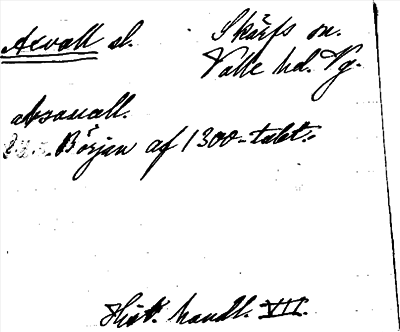 Acvall sl. Skärfs sn.
Valle hd. Vg.
aksauall.
Början af 1300-talet.
Hist. handl. VII.